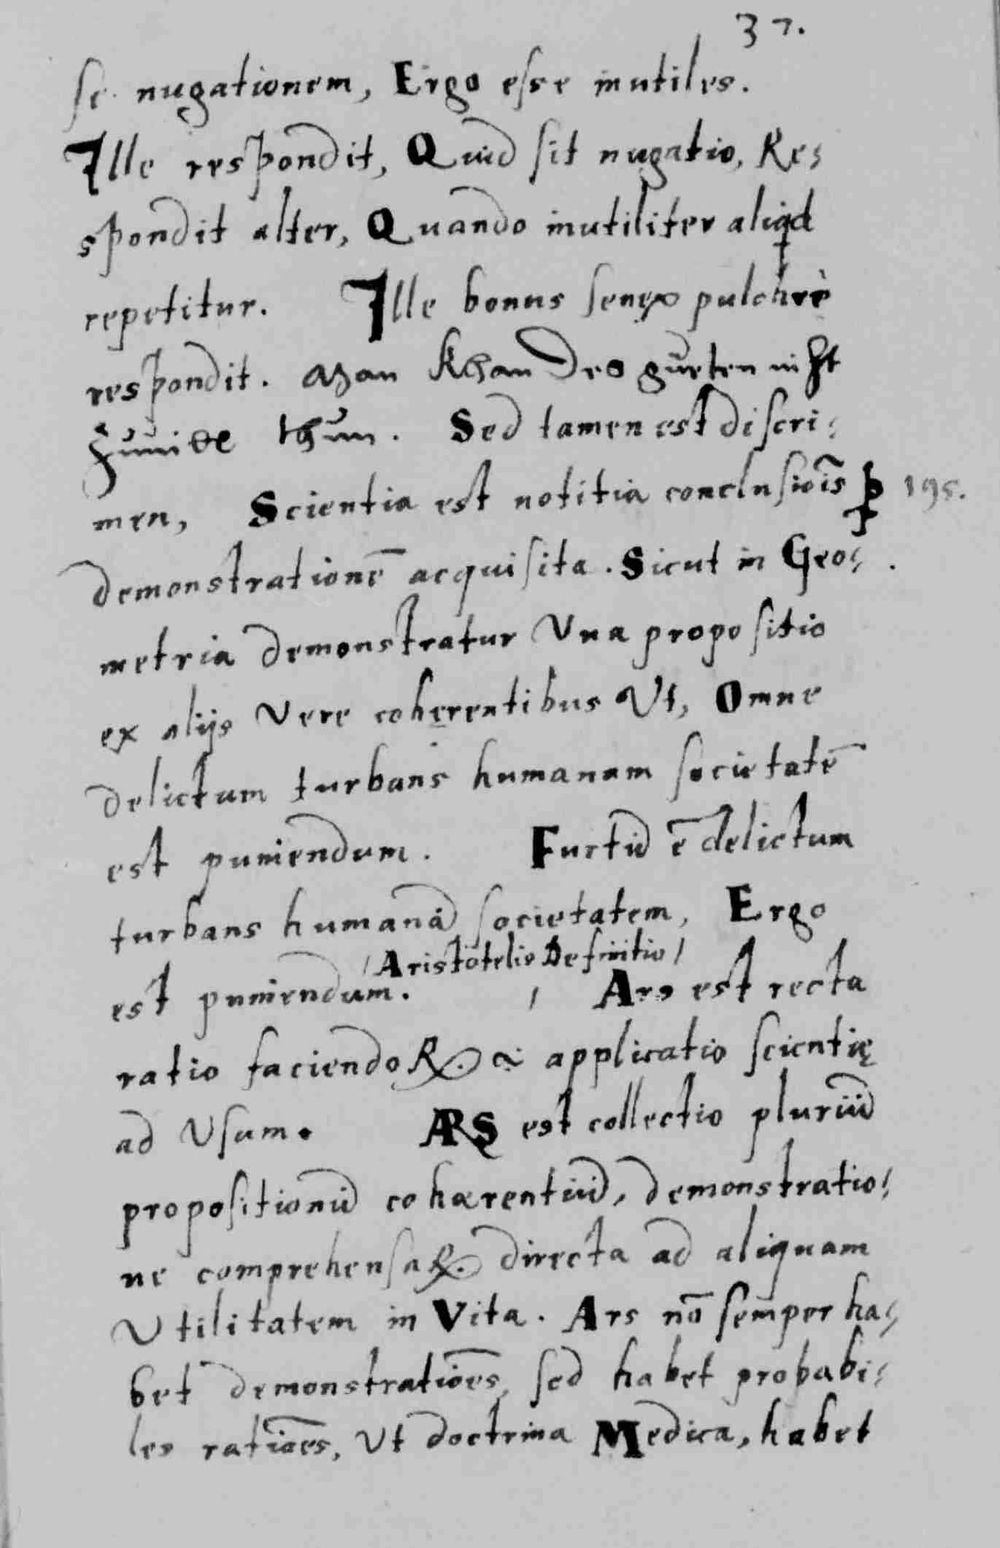 37.
se nugationem, Ergo esse inutiles.
Ille respondit, Quid sit nugatio, Re=
spondit alter, Quando inutiliter aliqd
repetitur. Ille bonus senex pulchrè
respondit. Man khan des gueten nicht
zuuil thun. Sed tamen est discri=
men, Scientia est notitia conclusiōis ꝑ 195.
demonstrationē acquisita. Sicut in Geo=
metria demonstratur Vna propositio
ex alijs vere cohęrentibus Vt, Omne
delictum turbans humanam societatē
est puniendum. Furtū ē delictum
turbans humanā societatem, Ergo
/Aristotelis Definitio/
est puniendum. / Ars est recta
ratio faciendoꝝ & applicatio scientię
ad Vsum. ARS est collectio pluriū
propositionū cohaerentiū, demonstratio=
ne comprehensaꝝ directa ad aliquam
Vtilitatem in Vita. Ars nō semper ha=
bet demonstratiōes, sed habet probabi=
les ratiōes, Vt doctrina Medica, habet